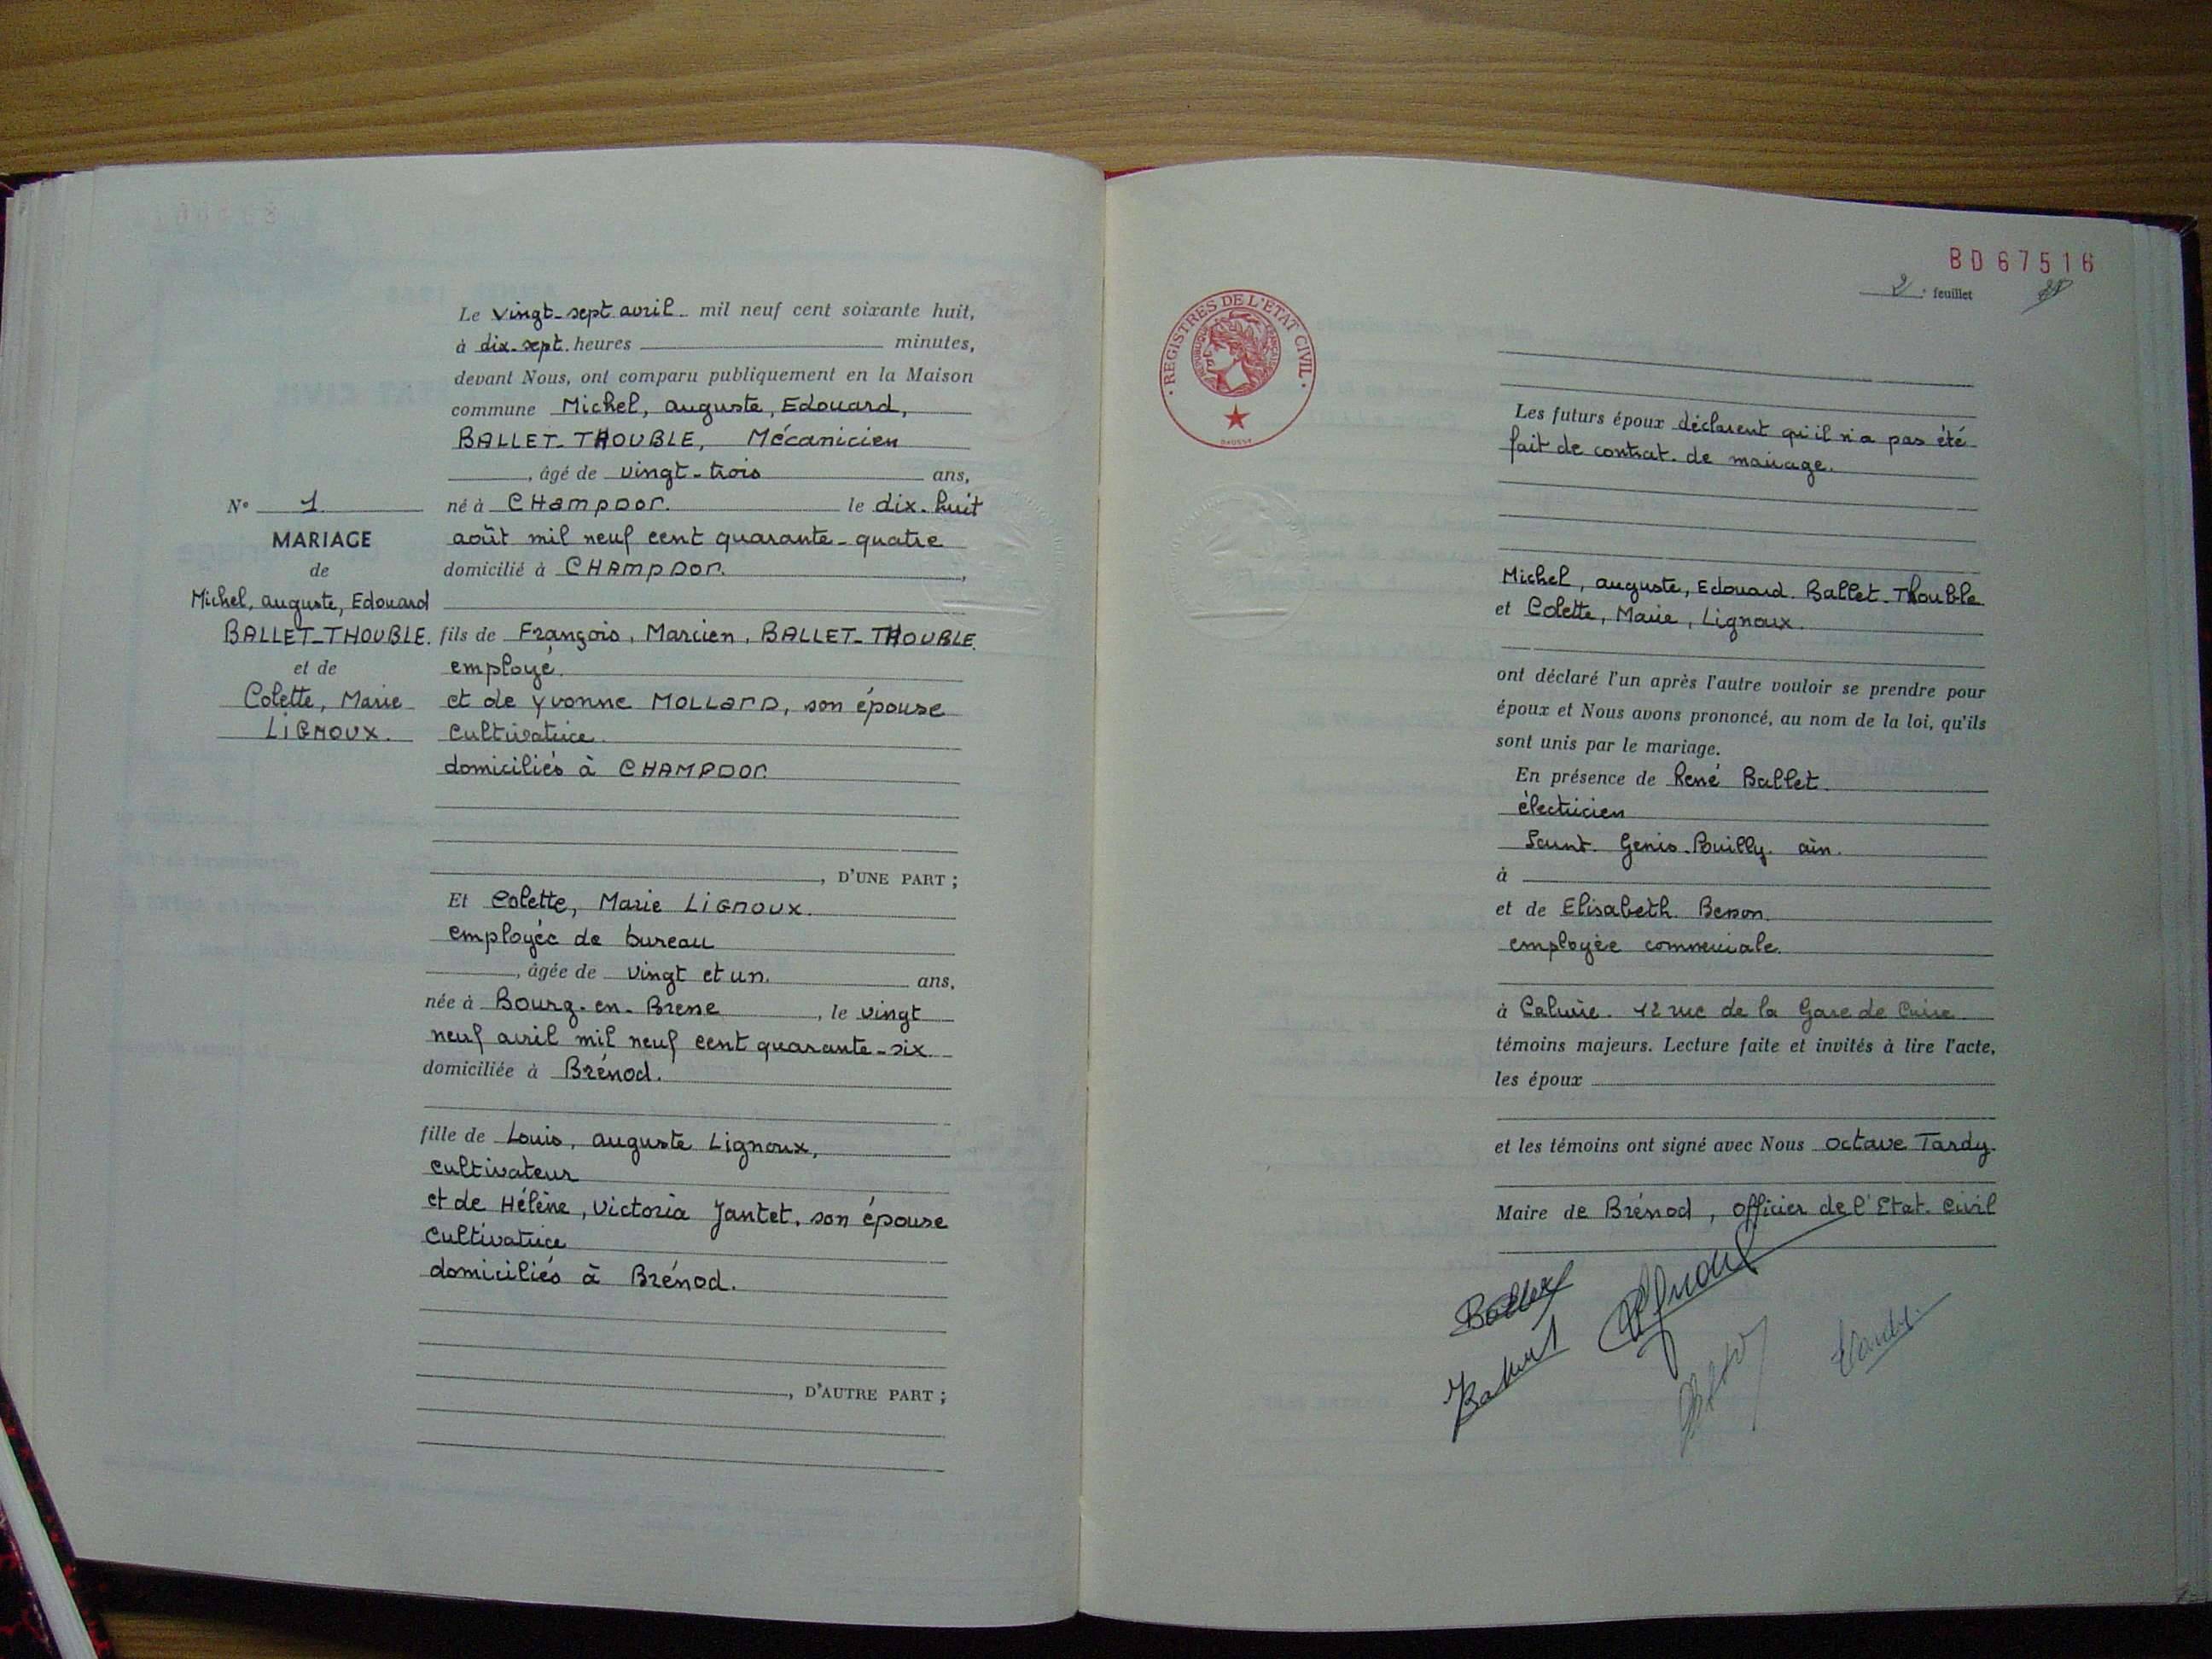 Le vingt-sept avril mil neuf cent soixante huit,
à dix-sept heures minutes,
devant Nous, ont comparu publiquement en la Maison
commune Michel, auguste, Edouard,
BALLET-THOUBLE, Mécanicien
, âgé de vingt-trois ans,
N° 1
né à CHAMPDOR. le dix-huit
MARIAGE
août mil neuf cent quarante-quatre
de
domicilié à CHAMPDOR.,
Michel, auguste, Edouard
BALLET-THOUBLE.
fils de François, Marcien, BALLET-THOUBLE.
et de
employé.
Colette, Marie
et de Yvonne MOLLARD, son épouse
LIGNOUX.
cultivatrice.
domiciliés à CHAMPDOR
, D'UNE PART ;
Et Colette, Marie LIGNOUX.
employée de bureau
, âgée de vingt et un. ans,
née à Bourg-en-Bresse, le vingt
neuf avril mil neuf cent quarante-six
domiciliée à Brénod.
fille de Louis, auguste Lignoux,
cultivateur
et de Hélène, Victoria Jantet, son épouse
cultivatrice
domiciliés à Brénod.
, D'AUTRE PART ;
BD67516
2e feuillet
REGISTRES DE L'ETAT CIVIL
REPUBLIQUE FRANÇAISE
Les futurs époux déclarent qu'il n'a pas été
fait de contrat de mariage.
Michel, auguste, Edouard. Ballet-Thouble
et Colette, Marie, Lignoux.
ont déclaré l'un après l'autre vouloir se prendre pour
époux et Nous avons prononcé, au nom de la loi, qu'ils
sont unis par le mariage.
En présence de René Ballet
électricien
Saint Genis-Pouilly. ain.
à
et de Elisabeth Besson
employée commerciale.
à Caluire. 12 rue de la Gare de Cuire
témoins majeurs. Lecture faite et invités à lire l'acte,
les époux
et les témoins ont signé avec Nous Octave Tardy.
Maire de Brénod, officier de l'Etat Civil
Ballet
Tardy